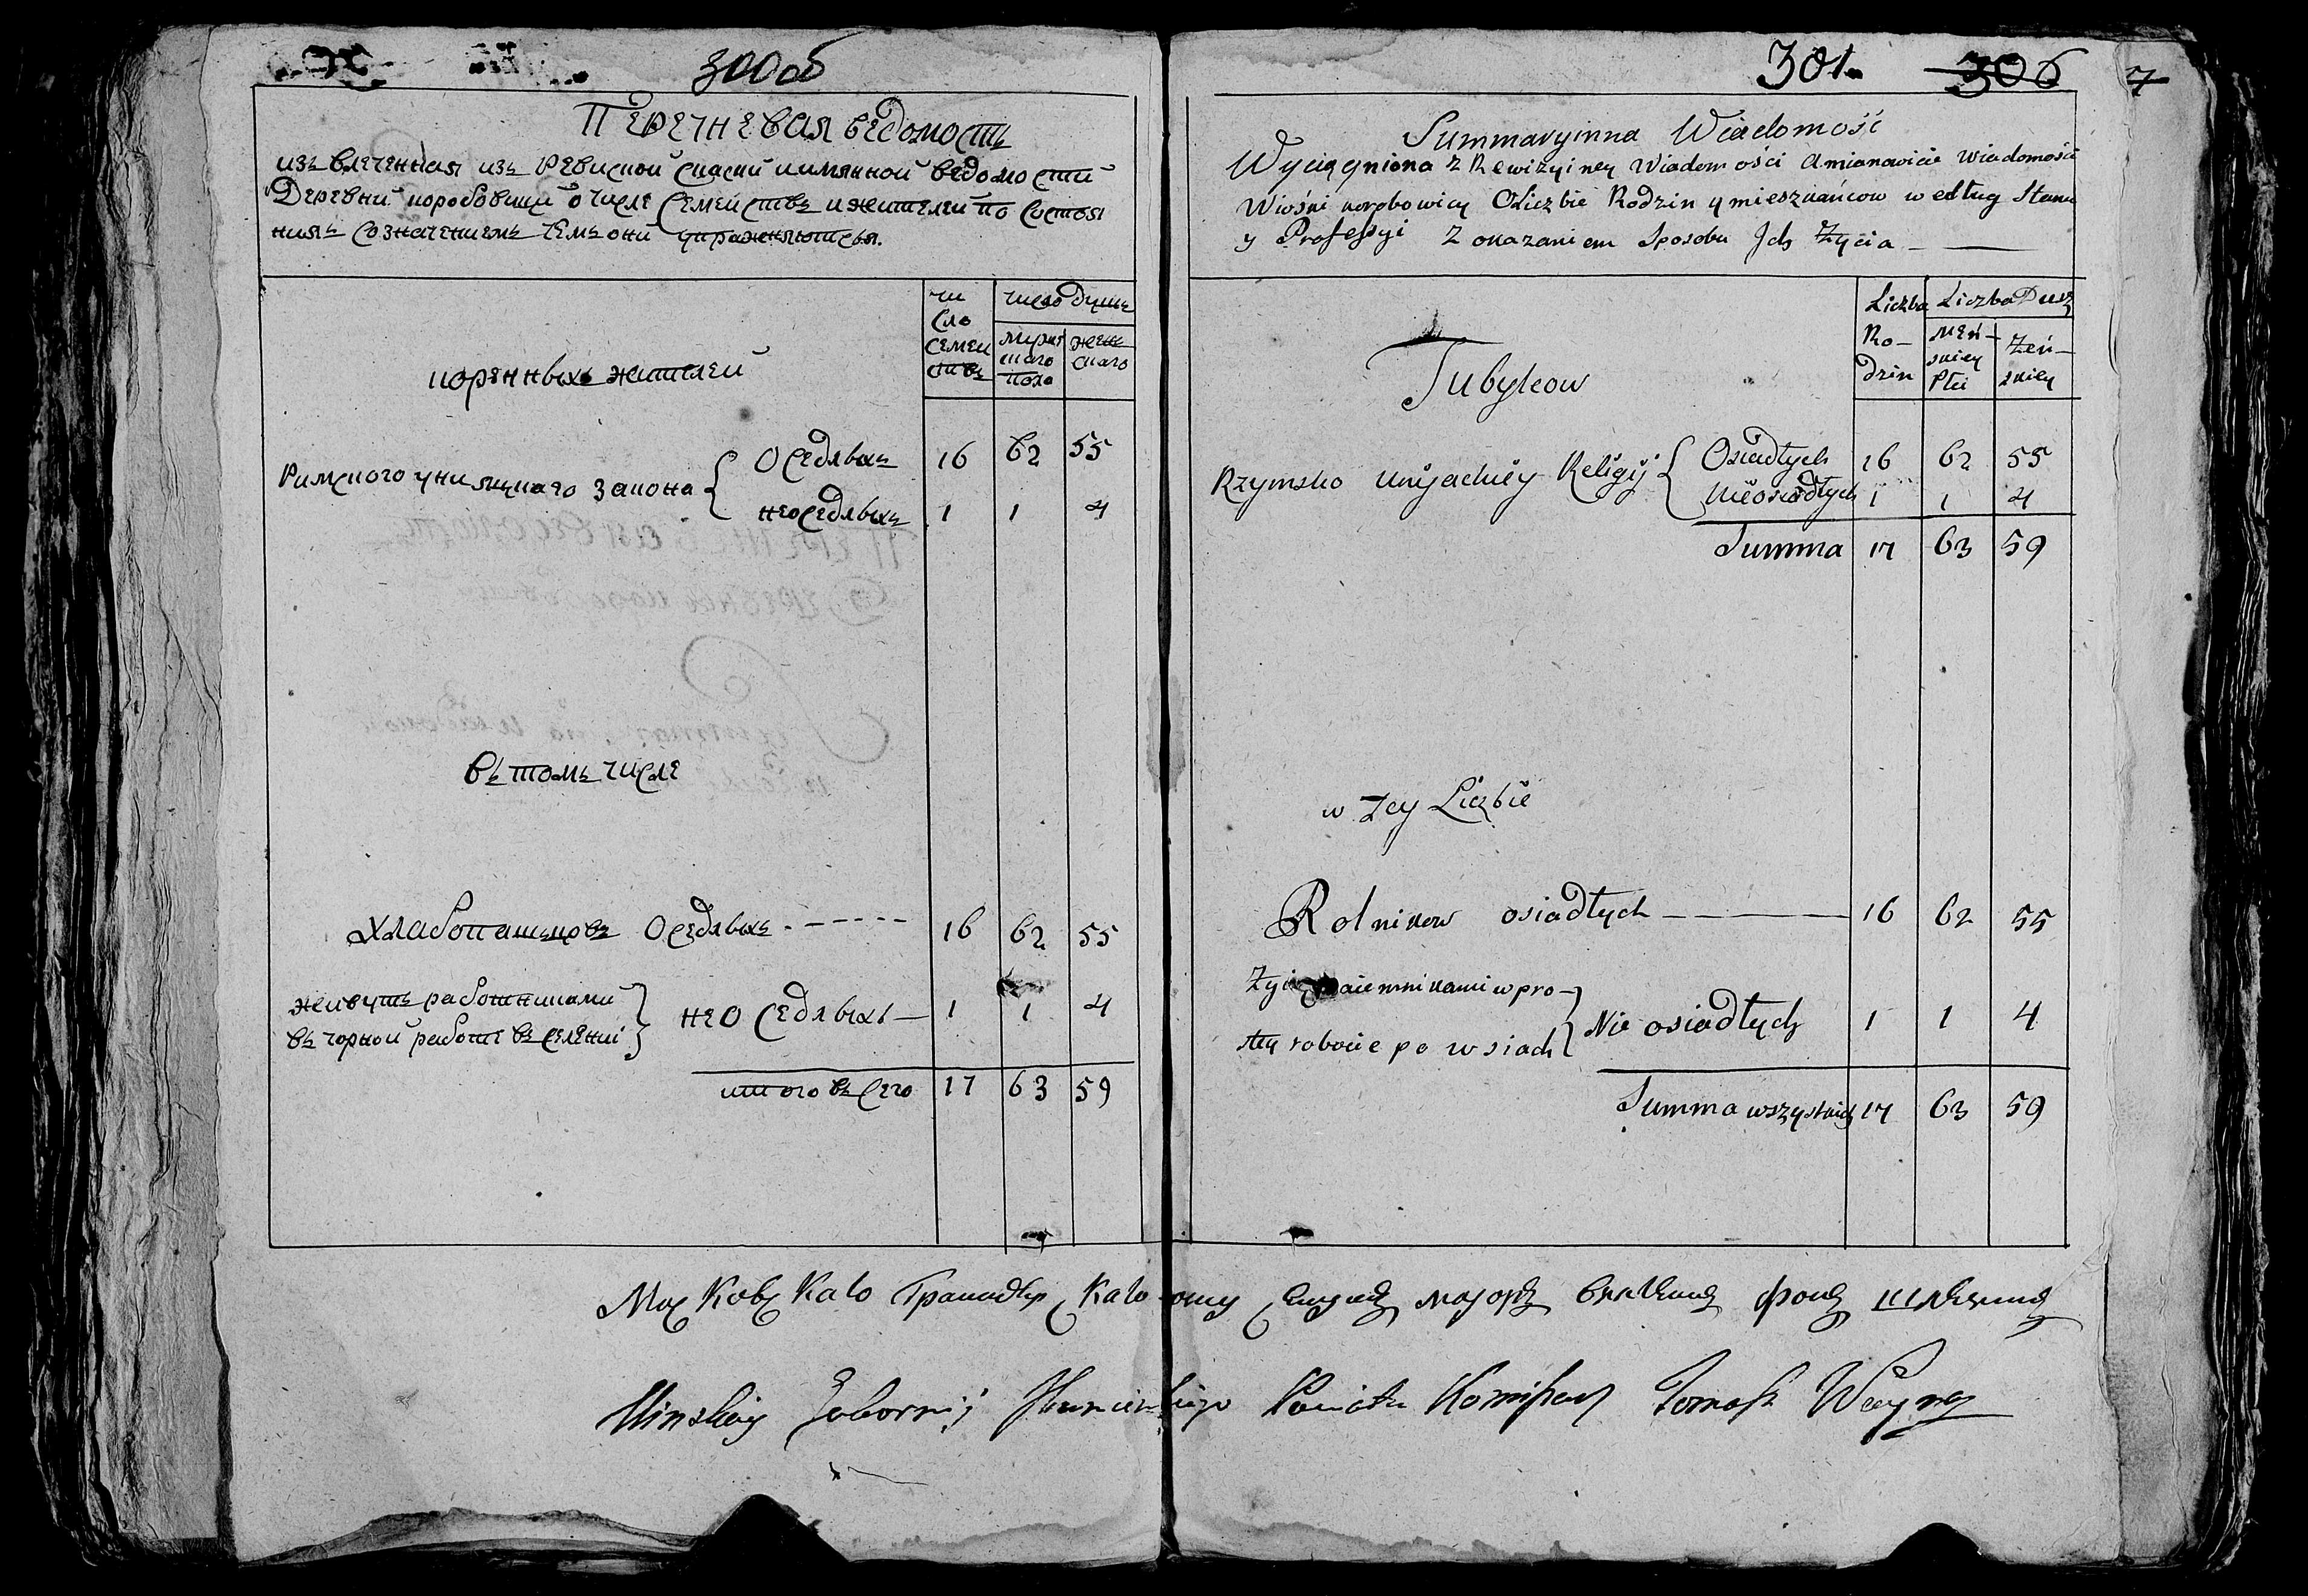 300об
Перечневая ведомость
изъ влеченная изъ Ревиской скаски иимянной ведомости
Деревни коробовичи о числе семействъ и жителей по состоя
ниямъ созначениемъ чемъ они упражняются.
чи
сло
семей
ствъ
число душъ
мужес
скаго
пола
жен
скаго
коренныхъ жителей
Римского униятцкаго закона
Оседлыхъ 16 62 55
неоседлыхъ 1 1 4
въ томъ числе
хлабопашцовъ Оседлыхъ 16 62 55
живутъ работниками
въ чорной работе въ селениі
неоседлыхъ 1 1 4
итого всего 17 63 59
301. 306 7
Summaryinna Wiadomość
Wyciągniona z Rewizyiney Wiadomości Amianowicie wiadomości
Wioski korobowicy O Liczbie Rodzin y mieszkańcow według Stanu
y Professyi Z okazaniem Sposobu Jch Życia
Liczba
Ro-
dzin
Liczba Dusz
Męń-
skiey
Płci
Żeń-
skiey
Tubylcow
Rzymsko Unijackiey Religij
Osiadłych 16 62 55
Nieosiadłych 1 1 4
Summa 17 63 59
w Tey Liczbie
Rolnikow osiadłych 16 62 55
Żyią naiemnikami w pro-
stey robocie po wsiach
Nie osiadłych 1 1 4
Summa wszystkich 17 63 59
Мос Ковс Каго Гранадер Каго
Minskiey Powiatu Komissarz Tomasz